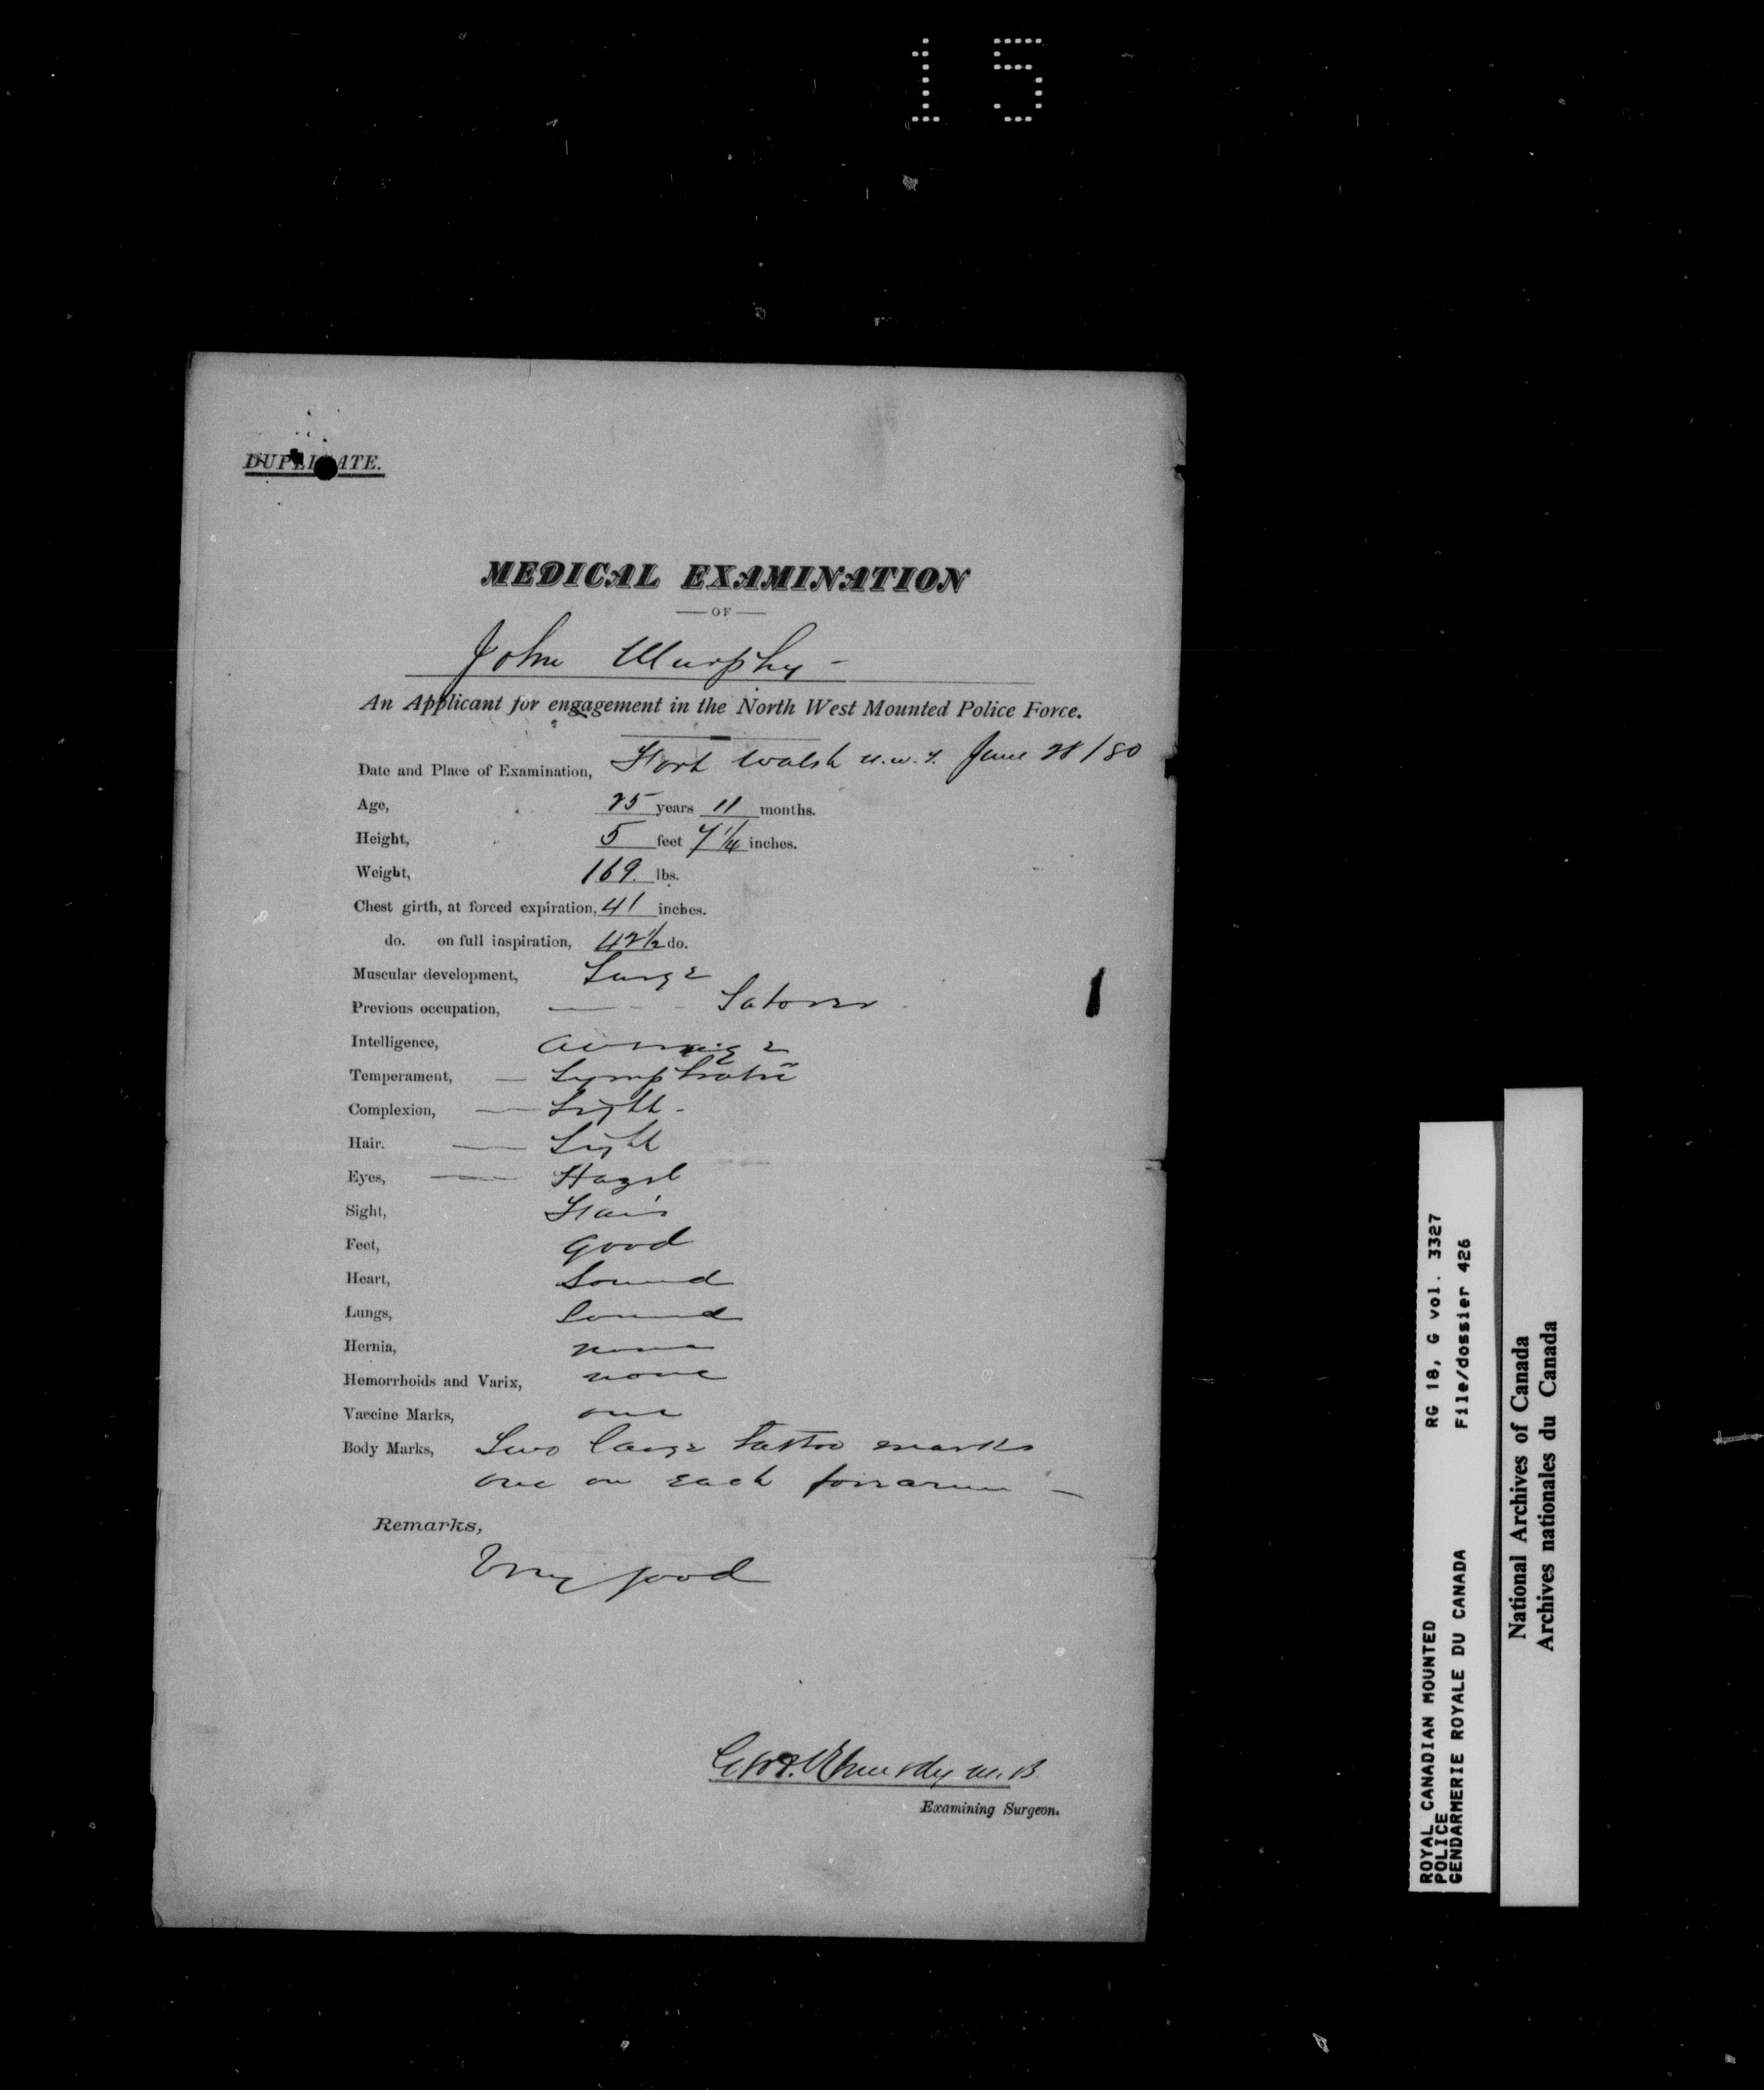 15
DUPLICATE.
MEDICAL EXAMINATION
— OF —
John Murphy -
An Applicant for engagement in the North West Mounted Police Force.
Date and Place of Examination, Fort Walsh N.W.T. June 28/80
Age, 25 years 11 months.
Height, 5 feet 7 1/4 inches.
Weight, 169. lbs.
Chest girth, at forced expiration, 41 inches.
do. on full inspiration, 42 1/2 do.
Muscular development, Large
Previous occupation, — Laborer
Intelligence, average
Temperament, — Lymphatic
Complexion, — Light -
Hair. — Light
Eyes, — Hazel
Sight, Fair
Feet, Good
Heart, Sound
Lungs, Sound
Hernia, none
Hemorrhoids and Varix, none
Vaccine Marks, one
Body Marks, Two large tattoo marks
one on each forearm —
Remarks,
Very good
Kennedy M.B.
Examining Surgeon.
ROYAL CANADIAN MOUNTED RG 18, G vol. 3327
POLICE
GENDARMERIE ROYALE DU CANADA File/dossier 426
National Archives of Canada
Archives nationales du Canada